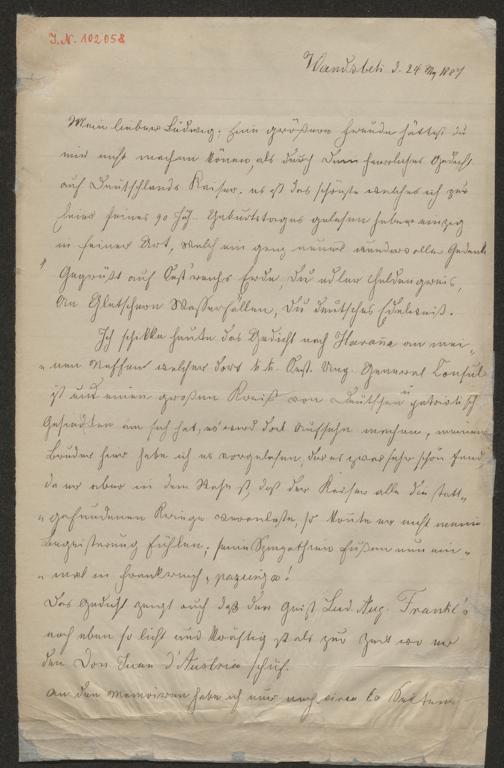 J.N. 102058
Wandsbek d. 24 Mz 1887
Mein lieber Ludwig! Eine größere Freude hättest du
mir nicht machen können, als durch Dein herrliches Gedicht
auf Deutschlands Kaiser. es ist das schönste welches ich zur
Feier seines 90 jäh. Geburtstages gelesen habe einzig
in seiner Art, welch ein ganz neuer wundervoller Gedanke
"Gegrüßt auf Östreichs Erde, du edler Heldengreis,
An Gletschern Wasserfällen, Du deutsches Edelweiß.
Ich schikke heute das Gedicht nach Havana an mei-
nen Neffen welcher dort k.k. Oest. Ung. General Consul
ist und einen großen Kreiß von Deutschen u patriotisch
Gesinnten um sich hat, es wird dort Aufsehn machen, meinem
Bruder hier habe ich es vorgelesen, der es zwar sehr schön fand
da er aber in dem Wahn ist, daß der Kaiser alle die statt-
gefundenen Kriege veranlaßte, so konnte er nicht meine
Begeisterung fühlen; seine Sympathien fußen nun ein-
mal in Frankreich,
Das Gedicht zeigt auch daß der Geist Lud. Aug. Frankl's
noch eben so licht und kräftig ist als zur Zeit wo er
den Don Juan d'Austria schuf.
An den Memoiren habe ich nur noch circa 60 Seiten